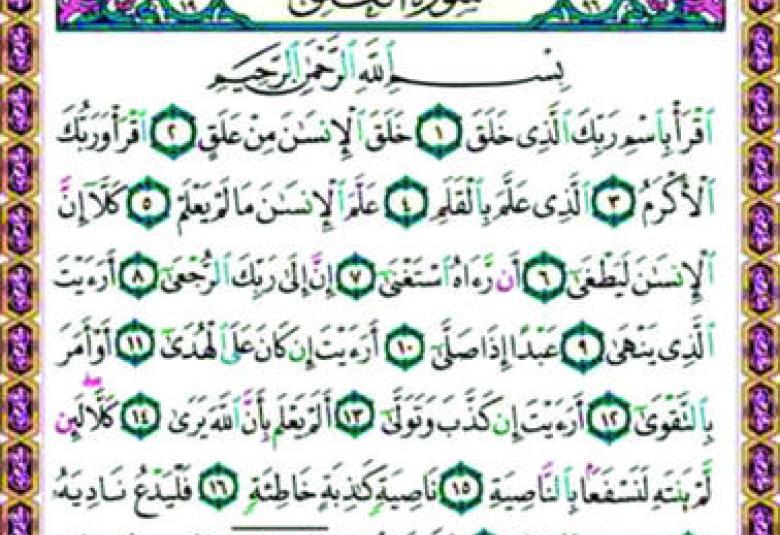 ١٩ سورة العلق ٩٦
بِسْمِ اللَّهِ الرَّحْمَٰنِ الرَّحِيمِ
ٱقْرَأْ بِٱسْمِ رَبِّكَ ٱلَّذِى خَلَقَ ١ خَلَقَ ٱلْإِنسَٰنَ مِنْ عَلَقٍ ٢ ٱقْرَأْ وَرَبُّكَ
ٱلْأَكْرَمُ ٣ ٱلَّذِى عَلَّمَ بِٱلْقَلَمِ ٤ عَلَّمَ ٱلْإِنسَٰنَ مَا لَمْ يَعْلَمْ ٥ كَلَّآ إِنَّ
ٱلْإِنسَٰنَ لَيَطْغَىٰٓ ٦ أَن رَّءَاهُ ٱسْتَغْنَىٰٓ ٧ إِنَّ إِلَىٰ رَبِّكَ ٱلرُّجْعَىٰٓ ٨ أَرَءَيْتَ
ٱلَّذِى يَنْهَىٰ ٩ عَبْدًا إِذَا صَلَّىٰٓ ١٠ أَرَءَيْتَ إِن كَانَ عَلَى ٱلْهُدَىٰٓ ١١ أَوْ أَمَرَ
بِٱلتَّقْوَىٰٓ ١٢ أَرَءَيْتَ إِن كَذَّبَ وَتَوَلَّىٰٓ ١٣ أَلَمْ يَعْلَم بِأَنَّ ٱللَّهَ يَرَىٰ ١٤ كَلَّا لَئِن
لَّمْ يَنتَهِ لَنَسْفَعًۢا بِٱلنَّاصِيَةِ ١٥ نَاصِيَةٍ كَٰذِبَةٍ خَاطِئَةٍ ١٦ فَلْيَدْعُ نَادِيَهُۥ